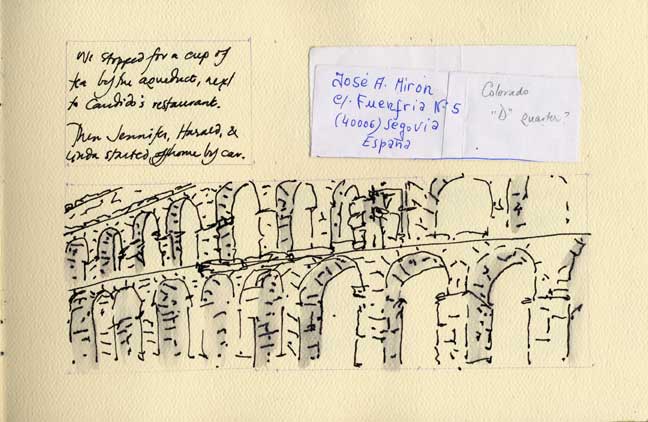 We stopped for a cup of
tea by the aqueduct, next
to Candido's restaurant.
Then Jennifer, Harald, &
Linda started off home by car.
José A. Mirón
c/. Fuenfría Nº 5
(40006) Segovia
España
Colorado
"D" quarter?